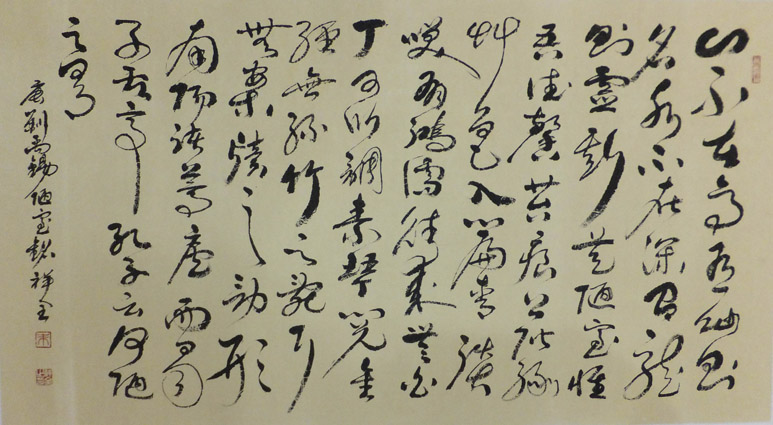 山不在高有仙則
名水不在深有龍
則靈斯是陋室惟
吾德馨苔痕上階綠
艸色入簾青談
笑有鴻儒往來無白
丁可以調素琴閱金
經無絲竹之亂耳
無案牘之勞形
南陽諸葛廬西蜀
子雲亭孔子云何陋
之有
唐劉禹錫陋室銘祥